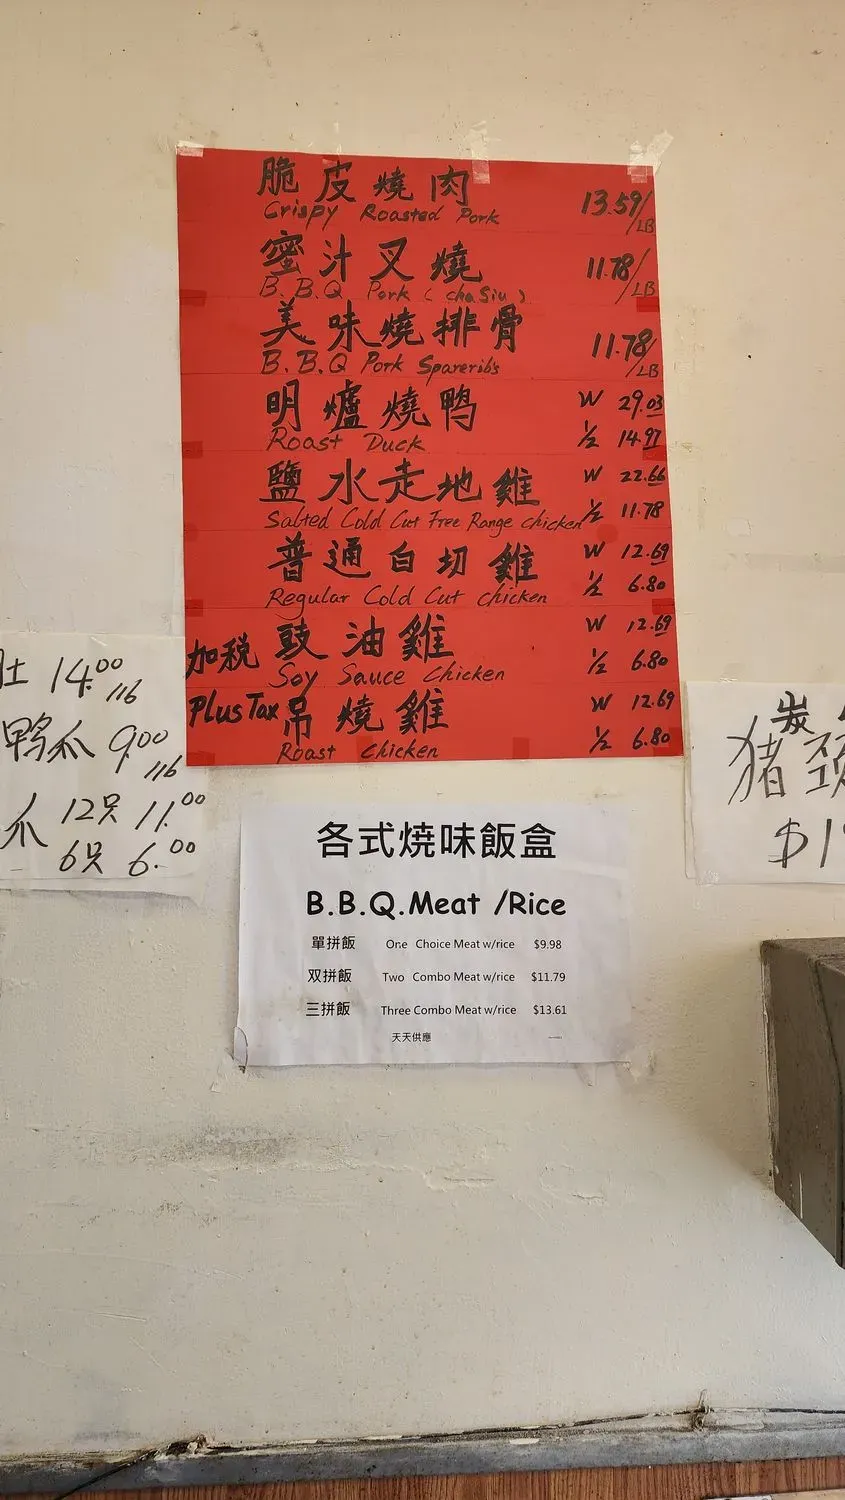 脆皮燒肉 13.59/LB
Crispy Roasted Pork
蜜汁叉燒 11.78/LB
B.B.Q Pork (Cha Siu)
美味燒排骨 11.78/LB
B.B.Q Pork Spareribs
明爐燒鸭 W 29.03
Roast Duck ½ 14.97
鹽水走地雞 W 22.66
Salted Cold Cut Free Range chicken ½ 11.78
普通白切雞 W 12.69
Regular Cold Cut chicken ½ 6.80
豉油雞 W 12.69
Soy Sauce Chicken ½ 6.80
加税
Plus Tax
吊燒雞 W 12.69
Roast chicken ½ 6.80
肚 14.00 1lb
鸭爪 9.00 1lb
爪 12只 11.00
6只 6.00
炭
猪颈
$1
各式燒味飯盒
B.B.Q.Meat /Rice
單拼飯 One Choice Meat w/rice $9.98
双拼飯 Two Combo Meat w/rice $11.79
三拼飯 Three Combo Meat w/rice $13.61
天天供應